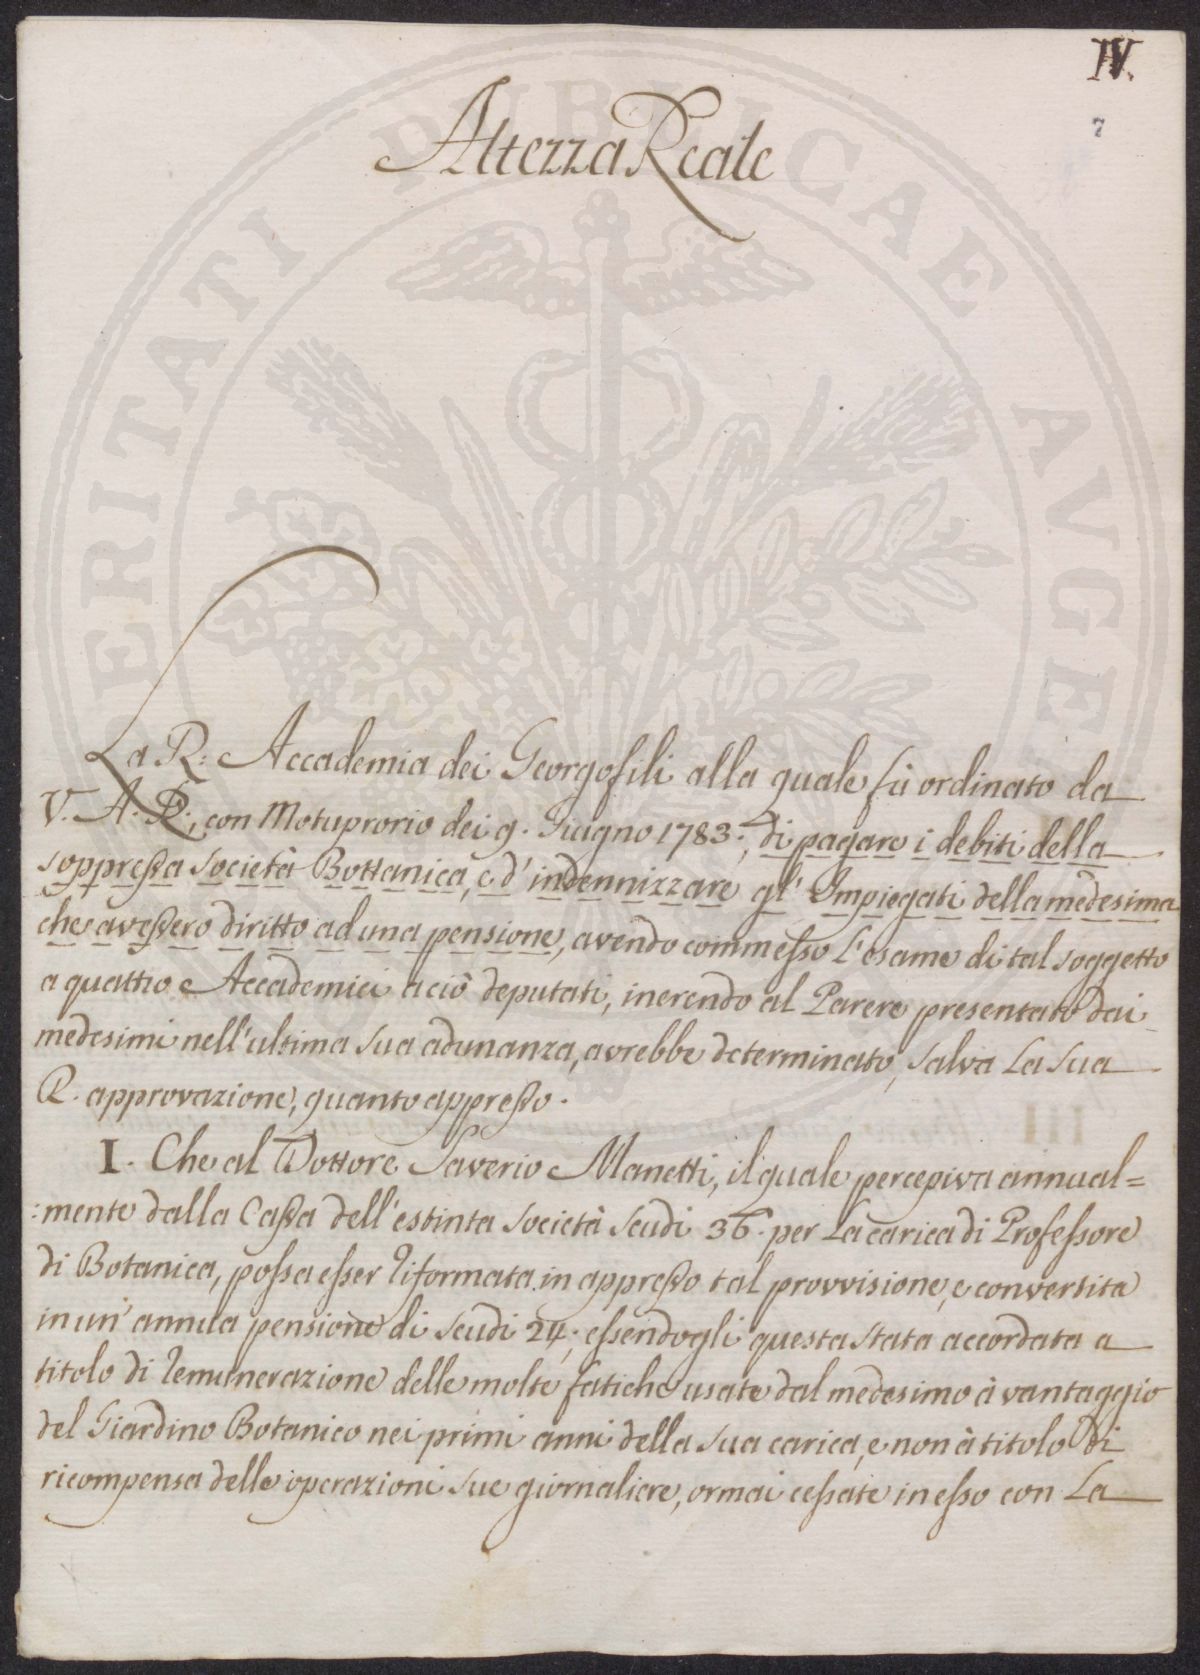 IV.
7
Altezza Reale
La R: Accademia dei Georgofili alla quale fù ordinato da
V. A. R., con Motuproprio dei 9. Giugno 1783., di pagare i debiti della
soppressa società Bottanica, e d' indennizzare gl' Impiegati della medesima
che avessero diritto ad una pensione, avendo commesso l'esame di tal soggetto
a quattro Accademici aciò deputati, inerendo al Parere presentato dai
medesimi nell'ultima sua adunanza, avrebbe determinato, salva la sua
R. approvazione, quanto appresso.
I. Che al Dottore Saverio Manetti, il quale percepiva annual=
:mente dalla Cassa dell'estinta società scudi 36. per la carica di Professore
di Botanica, possa esser riformata in appresso tal provvisione, e convertita
in un' annua pensione di scudi 24,. essendogli questa stata accordata a
titolo di remunerazione delle molte fatiche usate dal medesimo à vantaggio
del Giardino Botanico nei primi anni della sua carica, e non à titolo di
ricompensa delle operazioni sue giornaliere, ormai cessate in esso con la
PUBLICAE
PROSPERITATI
AVGE